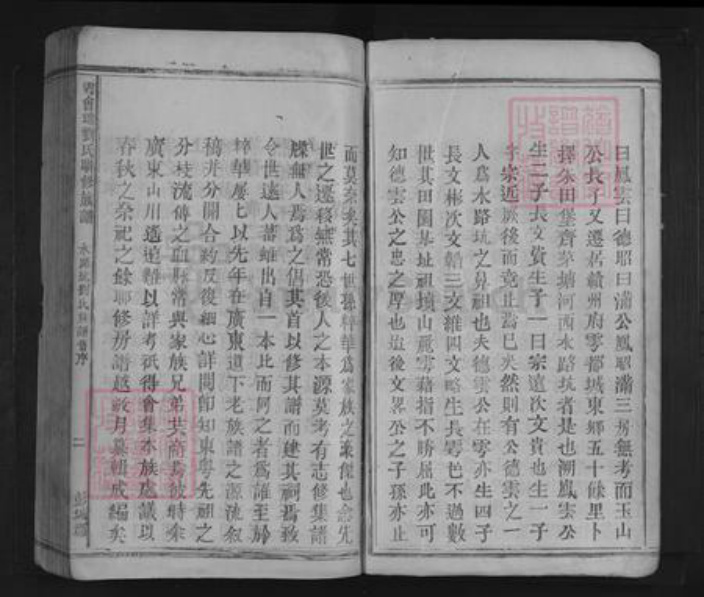 曰鳳雲曰德昭曰滿公鳳昭滿三房無考而玉山
公長子又遷居贛州府雩都城東鄉五十餘里卜
擇朱田堡齊茅塘河西水路坑者是也溯鳳雲公
生二子長文貴生子一曰宗遠次文貴也生一子
宗近厥後而竟止焉已矣然則有公德雲之一
人爲水路坑之鼻祖也夫德雲公在雩亦生四子
長文彬次文錦三文維四文畧生長雩邑不過數
世其田園基址祖墳山嶺雩藉指不勝屈此亦可
知德雲公之忠之厚也迨後文畧公之子孫亦止
而莫奈矣其七世孫粹華爲家族之豪傑也念先
世之遷移無常恐後人之本源莫考有志修集譜
牒無人焉爲之倡其首以修其譜而建其祠焉致
令世遠人蕃雖出自一本比而同之者爲誰至於
粹華屢上以先年在廣東道下老族譜之源流叙
稿并分開合約反復細心詳閱卽知東粤先祖之
分枝流傳之血脉常與家族兄弟共商爲彼時余
廣東山川遙遠難以詳考祇得會集本族處議以
春秋之祭祀之餘聯修房譜越數月纂輯成編矣
雩會瑞劉氏聯修族譜
水路坑劉氏族譜舊序
二
彭城郡